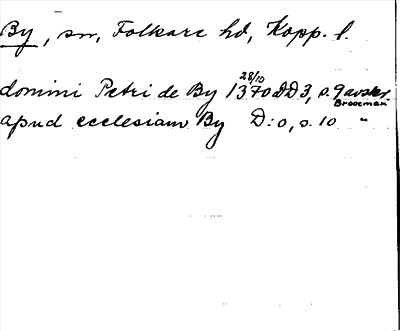 By, sn, Folkare hd, Kopp. l.
28/10
domini Petri de By 1370 DD3, s. 9 avskr.
Broocman
apud ecclesiam By D:o, s. 10 "